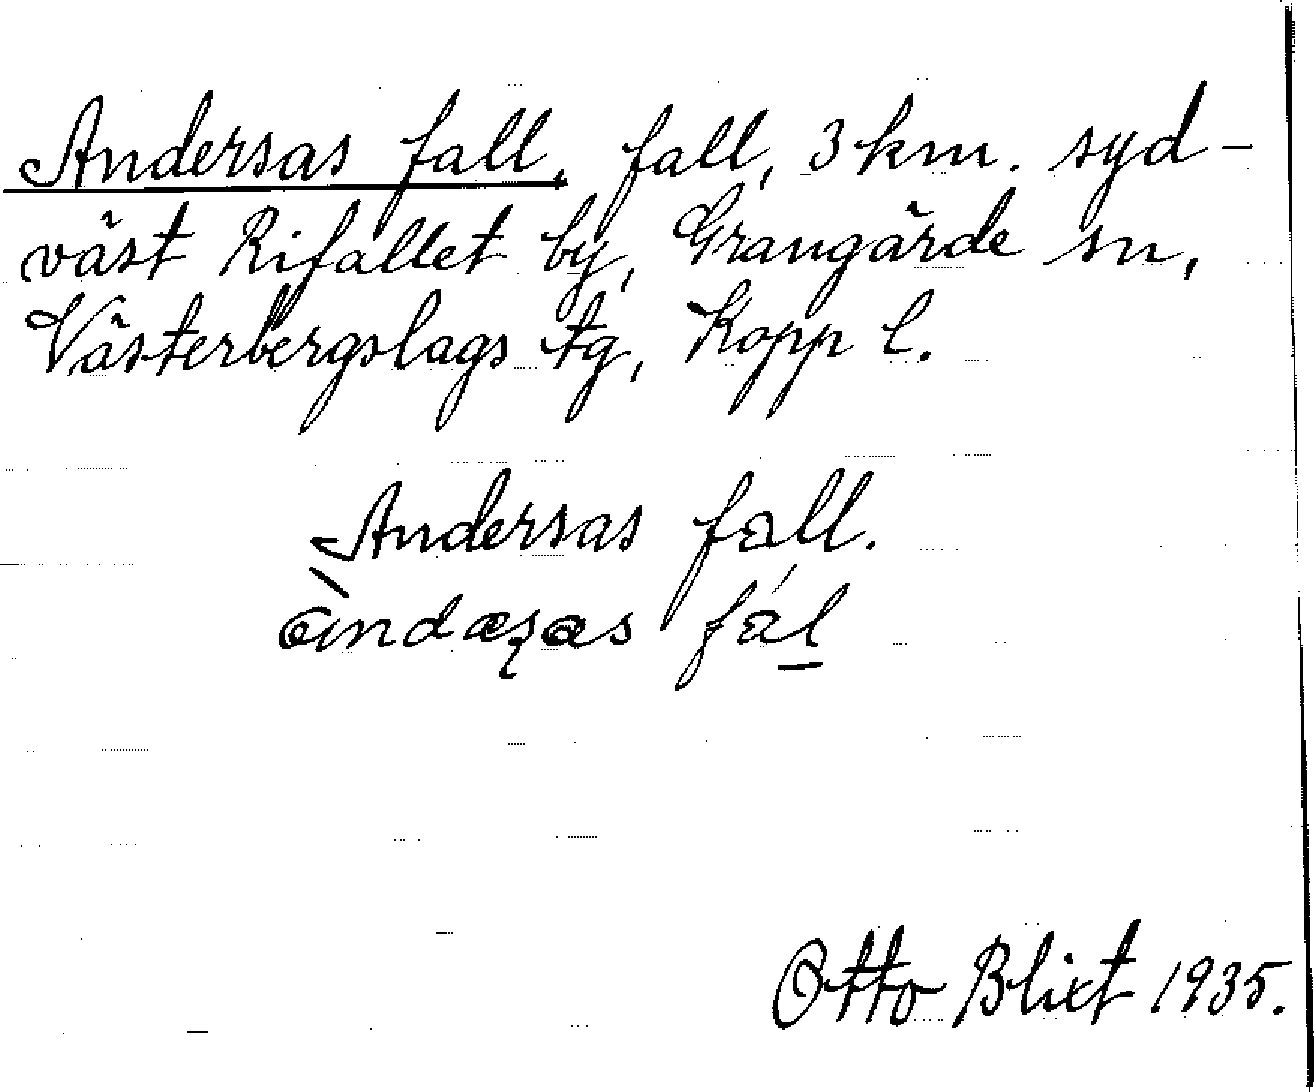 Andersas fall, fall, 3 km. syd-
väst Rifallet by, Grangärde sn,
Västerbergslags tg, Kopp l.
Andersas fall.
àndæʂas fál
Otto Blixt 1935.